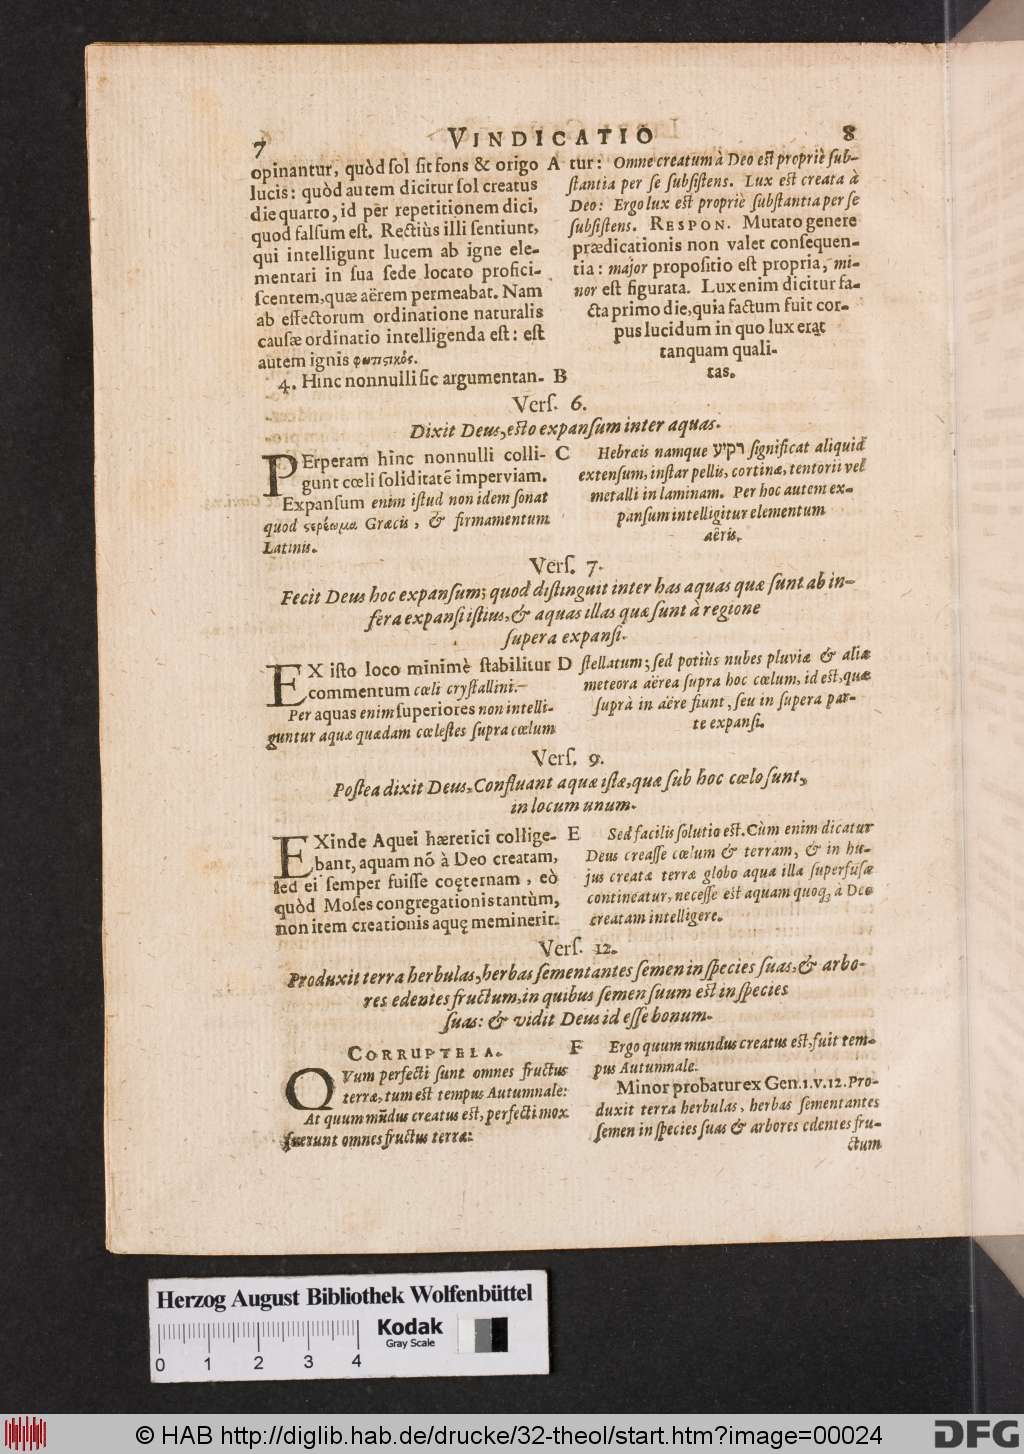 7 VINDICATIO 8
opinantur, quòd sol sit fons & origo
lucis: quòd autem dicitur sol creatus
die quarto, id per repetitionem dici,
quod falsum est. Rectiùs illi sentiunt,
qui intelligunt lucem ab igne ele-
mentari in sua sede locato profici-
scentem, quæ aërem permeabat. Nam
ab effectorum ordinatione naturalis
causæ ordinatio intelligenda est: est
autem ignis φωτιςικός.
4. Hinc nonnulli sic argumentan-
A
B
tur: Omne creatum à Deo est propriè sub-
stantia per se subsistens. Lux est creata à
Deo: Ergo lux est propriè substantia per se
subsistens. RESPON. Mutato genere
prædicationis non valet consequen-
tia: major propositio est propria, mi-
nor est figurata. Lux enim dicitur fa-
cta primo die, quia factum fuit cor-
pus lucidum in quo lux erat
tanquam quali-
tas.
Vers. 6.
Dixit Deus, esto expansum inter aquas.
PErperam hinc nonnulli colli-
gunt cœli soliditatē imperviam.
Expansum enim istud non idem sonat
quod ςερέωμα Græcis, & firmamentum
Latinis.
C
Hebræis namque רקיע significat aliquid
extensum, instar pellis, cortinæ, tentorii vel
metalli in laminam. Per hoc autem ex-
pansum intelligitur elementum
aëris.
Vers. 7.
Fecit Deus hoc expansum; quod distinguit inter has aquas quæ sunt ab in-
fera expansi istius, & aquas illas quæ sunt à regione
supera expansi.
EX isto loco minimè stabilitur
commentum cœli crystallini.
Per aquas enim superiores non intelli-
guntur aquæ quædam cœlestes supra cœlum
D
stellatum; sed potiùs nubes pluviæ & aliæ
meteora aërea supra hoc cœlum, id est, quæ
suprà in aëre fiunt, seu in supera par-
te expansi.
Vers. 9.
Postea dixit Deus, Confluant aquæ istæ, quæ sub hoc cœlo sunt,
in locum unum.
EXinde Aquei hæretici collige-
bant, aquam nō à Deo creatam,
sed ei semper fuisse coęternam, eò
quòd Moses congregationis tantùm,
non item creationis aquę meminerit.
E
Sed facilis solutio est. Cùm enim dicatur
Deus creasse cœlum & terram, & in hu-
jus creatæ terræ globo aqua illa superfusæ
contineatur, necesse est aquam quoq; à Deo
creatam intelligere.
Vers. 12.
Produxit terra herbulas, herbas sementantes semen in species suas, & arbo-
res edentes fructum, in quibus semen suum est in species
suas: & vidit Deus id esse bonum.
CORRUPTELA.
QVum perfecti sunt omnes fructus
terræ, tum est tempus Autumnale:
At quum mūdus creatus est, perfecti mox
fuerunt omnes fructus terræ:
F
Ergo quum mundus creatus est, fuit tem-
pus Autumnale.
Minor probatur ex Gen. 1. v. 12. Pro-
duxit terra herbulas, herbas sementantes
semen in species suas & arbores edentes fru-
ctum
Herzog August Bibliothek Wolfenbüttel
Kodak
Gray Scale
0 1 2 3 4
© HAB http://diglib.hab.de/drucke/32-theol/start.htm?image=00024
DFG